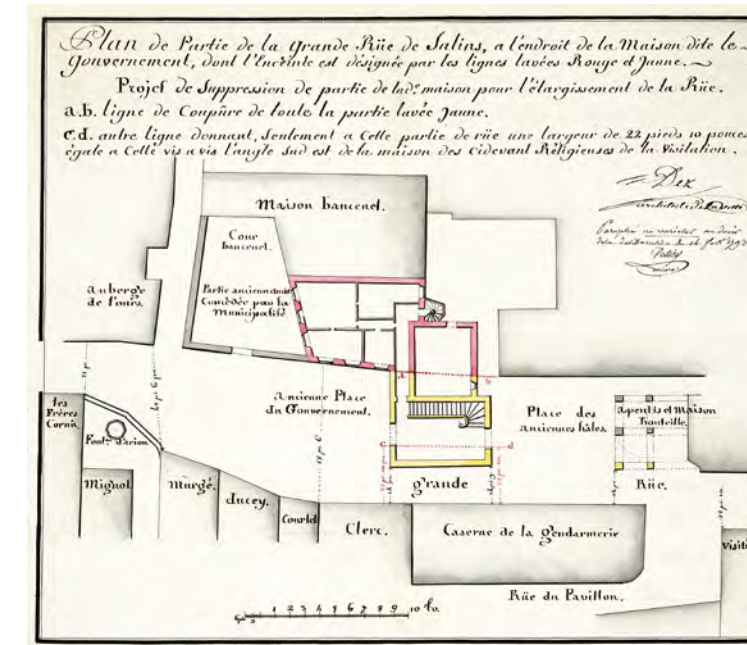 Plan de Partie de la grande Rüe de Salins, a l'endroit de la Maison dite le
Gouvernement, dont l'Enceinte est désignée par les lignes lavées Rouge et Jaune.
Projet de Suppression de partie de lad.e maison pour l'élargissement de la Rüe.
a.b. ligne de Coupûre de toute la partie lavée Jaune.
c.d. autre ligne donnant, seulement a Cette partie de rüe une largeur de 22 pieds 10 pouces
égale a Celle vis a vis l'angle sud est de la maison des cidevant Réligieuses de la Visitation.
Dex
Maison bancenel.
Cour
bancenel.
auberge
de l'ours.
Partie anciennement
Concédée par la
Municipalité
a
b
les
Frères
Cornu.
Font.e d'arion
ancienne Place
du Gouvernement.
Place des
anciennes hâles.
apentis et Maison
c
d
Mignot
Murgé.
ducey.
Courlet
Clerc.
grande
Rüe.
Caserne de la gendarmerie
Visit
Rüe du Pavillon.
1 2 3 4 5 6 7 8 9 10 to.